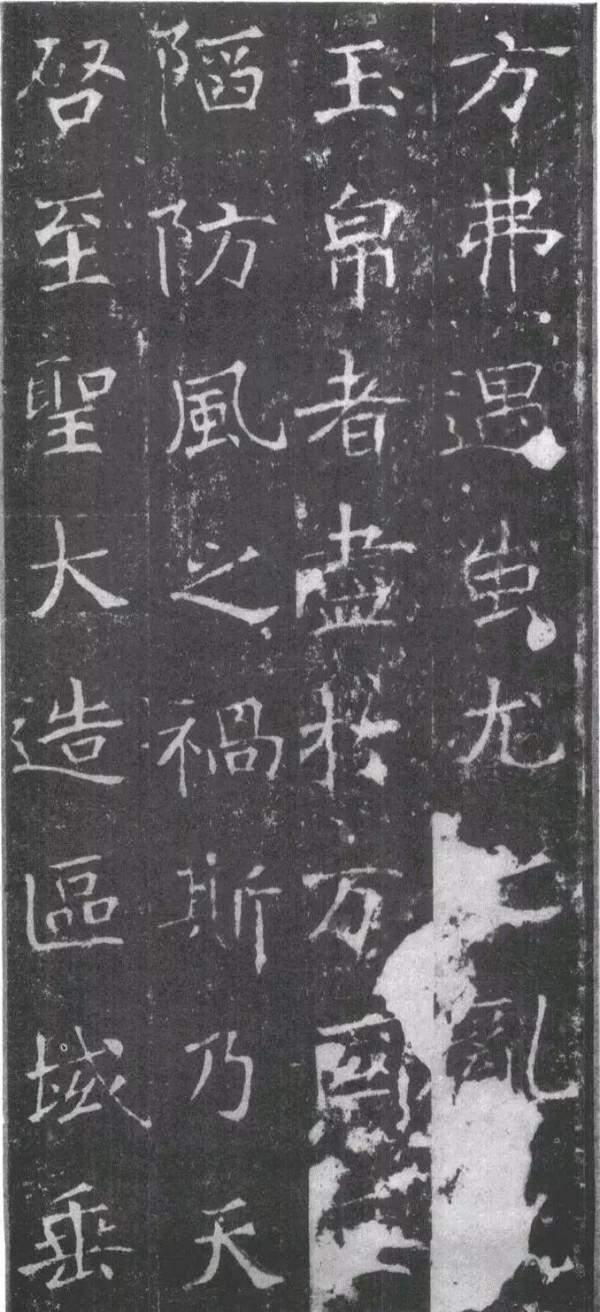 方弗遇蚩尤亂
玉帛者盡於万國
陷防風之禍斯乃天
啓至聖大造區域垂